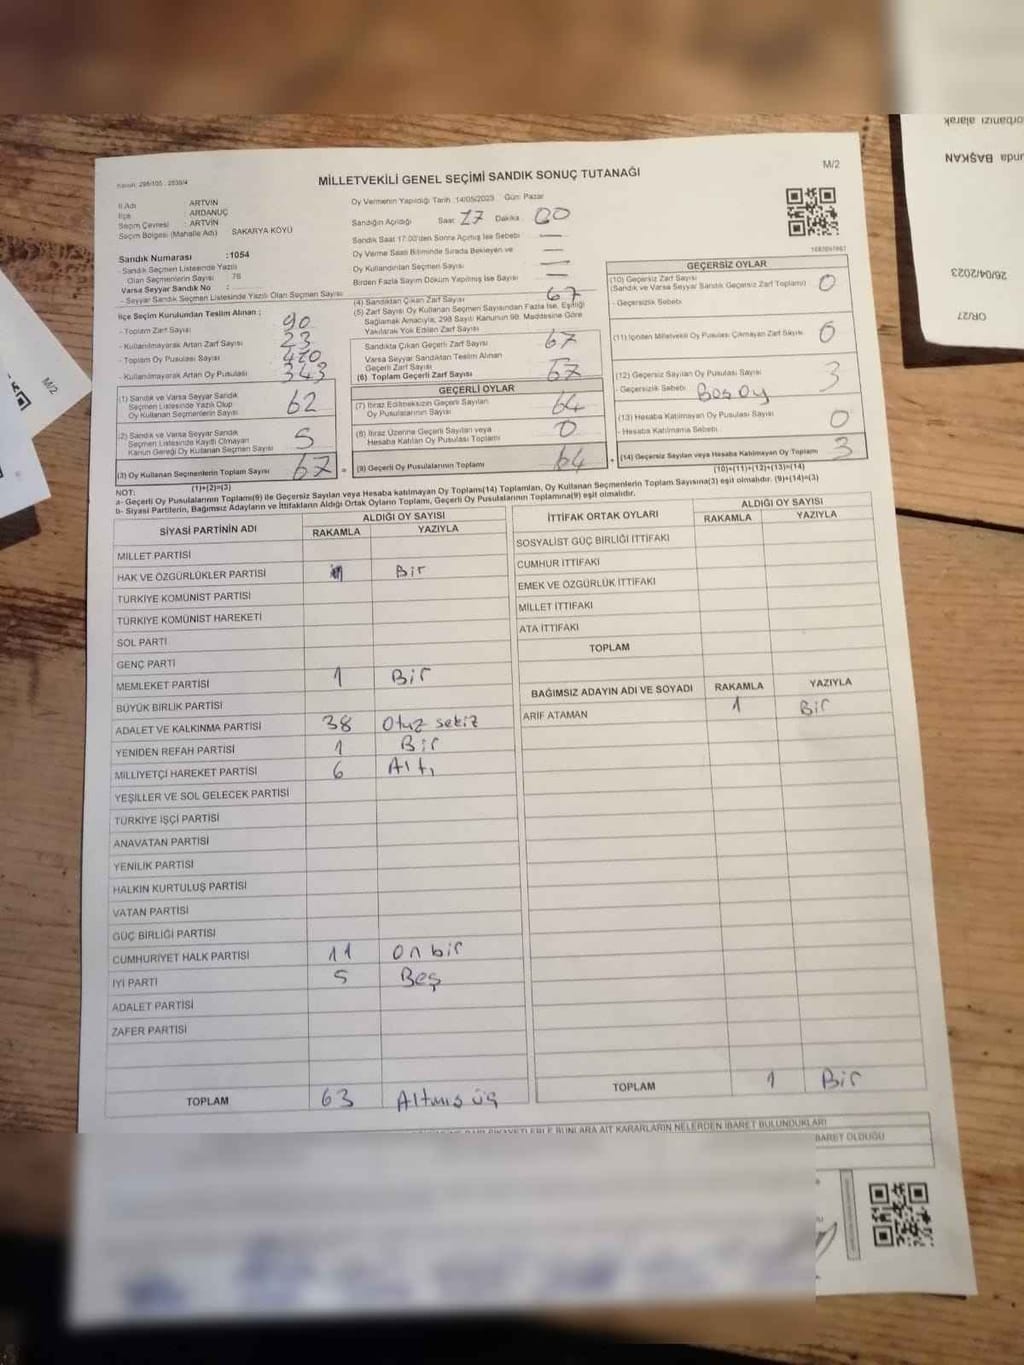 M/2
MİLLETVEKİLİ GENEL SEÇİMİ SANDIK SONUÇ TUTANAĞI
İl Adı : ARTVİN
İlçe : ARDANUÇ
Seçim Çevresi : ARTVİN
Seçim Bölgesi (Mahalle Adı) SAKARYA KÖYÜ
Oy Vermenin Yapıldığı Tarih :14/05/2023 Gün: Pazar
Sandığın Açıldığı Saat: 17 Dakika: 00
Sandık Saat 17:00'den Sonra Açılmış İse Sebebi —
Oy Verme Saati Bitiminde Sırada Bekleyen ve —
Oy Kullandırılan Seçmen Sayısı —
Birden Fazla Sayım Döküm Yapılmış İse Sayısı —
Sandık Numarası :1054
- Sandık Seçmen Listesinde Yazılı
Olan Seçmenlerin Sayısı : 76
Varsa Seyyar Sandık No :
- Seyyar Sandık Seçmen Listesinde Yazılı Olan Seçmen Sayısı
İlçe Seçim Kurulundan Teslim Alınan ;
- Toplam Zarf Sayısı 90
- Kullanılmayarak Artan Zarf Sayısı 23
- Toplam Oy Pusulası Sayısı
- Kullanılmayarak Artan Oy Pusulası 343
(1) Sandık ve Varsa Seyyar Sandık
Seçmen Listesinde Yazılı Olup
Oy Kullanan Seçmenlerin Sayısı 62
(2) Sandık ve Varsa Seyyar Sandık
Seçmen Listesinde Kaydı Olmayan
Kanun Gereği Oy Kullanan Seçmen Sayısı 5
(3) Oy Kullanan Seçmenlerin Toplam Sayısı 67
(1)+(2)=(3)
(4) Sandıktan Çıkan Zarf Sayısı 67
(5) Zarf Sayısı Oy Kullanan Seçmen Sayısından Fazla İse, Eşitliği
Sağlamak Amacıyla, 298 Sayılı Kanunun 98. Maddesine Göre
Yakılarak Yok Edilen Zarf Sayısı
Sandıkta Çıkan Geçerli Zarf Sayısı 67
Varsa Seyyar Sandıktan Teslim Alınan
Geçerli Zarf Sayısı —
(6) Toplam Geçerli Zarf Sayısı 67
GEÇERLİ OYLAR
(7) İtiraz Edilmeksizin Geçerli Sayılan
Oy Pusulalarının Sayısı 64
(8) İtiraz Üzerine Geçerli Sayılan veya
Hesaba Katılan Oy Pusulası Toplamı 0
(9) Geçerli Oy Pusulalarının Toplamı 64
GEÇERSİZ OYLAR
(10) Geçersiz Zarf Sayısı
(Sandık ve Varsa Seyyar Sandık Geçersiz Zarf Toplamı) 0
- Geçersizlik Sebebi
(11) İçinden Milletvekili Oy Pusulası Çıkmayan Zarf Sayısı 0
(12) Geçersiz Sayılan Oy Pusulası Sayısı 3
- Geçersizlik Sebebi Boş oy
(13) Hesaba Katılmayan Oy Pusulası Sayısı 0
- Hesaba Katılmama Sebebi
(14) Geçersiz Sayılan veya Hesaba Katılmayan Oy Toplamı 3
(10)+(11)+(12)+(13)=(14)
NOT:
a- Geçerli Oy Pusulalarının Toplamı(9) ile Geçersiz Sayılan veya Hesaba katılmayan Oy Toplamı(14) Toplamları, Oy Kullanan Seçmenlerin Toplam Sayısına(3) eşit olmalıdır. (9)+(14)=(3)
b- Siyasi Partilerin, Bağımsız Adayların ve İttifakların Aldığı Ortak Oyların Toplamı, Geçerli Oy Pusulalarının Toplamına(9) eşit olmalıdır.
SİYASİ PARTİNİN ADI ALDIĞI OY SAYISI
RAKAMLA YAZIYLA
MİLLET PARTİSİ
HAK VE ÖZGÜRLÜKLER PARTİSİ Bir
TÜRKİYE KOMÜNİST PARTİSİ
TÜRKİYE KOMÜNİST HAREKETİ
SOL PARTİ
GENÇ PARTİ
MEMLEKET PARTİSİ 1 Bir
BÜYÜK BİRLİK PARTİSİ
ADALET VE KALKINMA PARTİSİ 38 Otuz sekiz
YENİDEN REFAH PARTİSİ 1 Bir
MİLLİYETÇİ HAREKET PARTİSİ 6 Altı
YEŞİLLER VE SOL GELECEK PARTİSİ
TÜRKİYE İŞÇİ PARTİSİ
ANAVATAN PARTİSİ
YENİLİK PARTİSİ
HALKIN KURTULUŞ PARTİSİ
VATAN PARTİSİ
GÜÇ BİRLİĞİ PARTİSİ
CUMHURİYET HALK PARTİSİ 11 On bir
İYİ PARTİ 5 Beş
ADALET PARTİSİ
ZAFER PARTİSİ
TOPLAM 63 Altmış üç
İTTİFAK ORTAK OYLARI ALDIĞI OY SAYISI
RAKAMLA YAZIYLA
SOSYALİST GÜÇ BİRLİĞİ İTTİFAKI
CUMHUR İTTİFAKI
EMEK VE ÖZGÜRLÜK İTTİFAKI
MİLLET İTTİFAKI
ATA İTTİFAKI
TOPLAM
BAĞIMSIZ ADAYIN ADI VE SOYADI RAKAMLA YAZIYLA
ARİF ATAMAN 1 Bir
TOPLAM 1 Bir
KARARLARIN NELERDEN İBARET BULUNDUKLARI
OLDUĞU
unda BAŞKAN
26/04/2023
OR/27
M/2